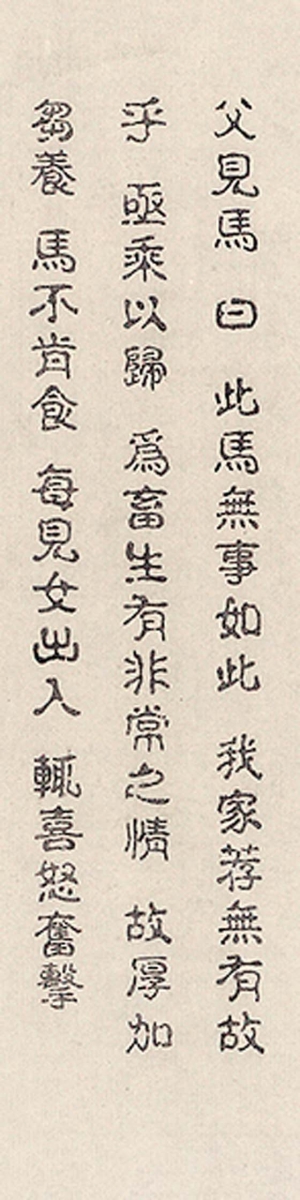 父見馬 曰 此馬無事如此 我家荐無有故
乎 亟乘以歸 爲畜生有非常之情 故厚加
芻養 馬不肯食 每見女出入 輒喜怒奮擊